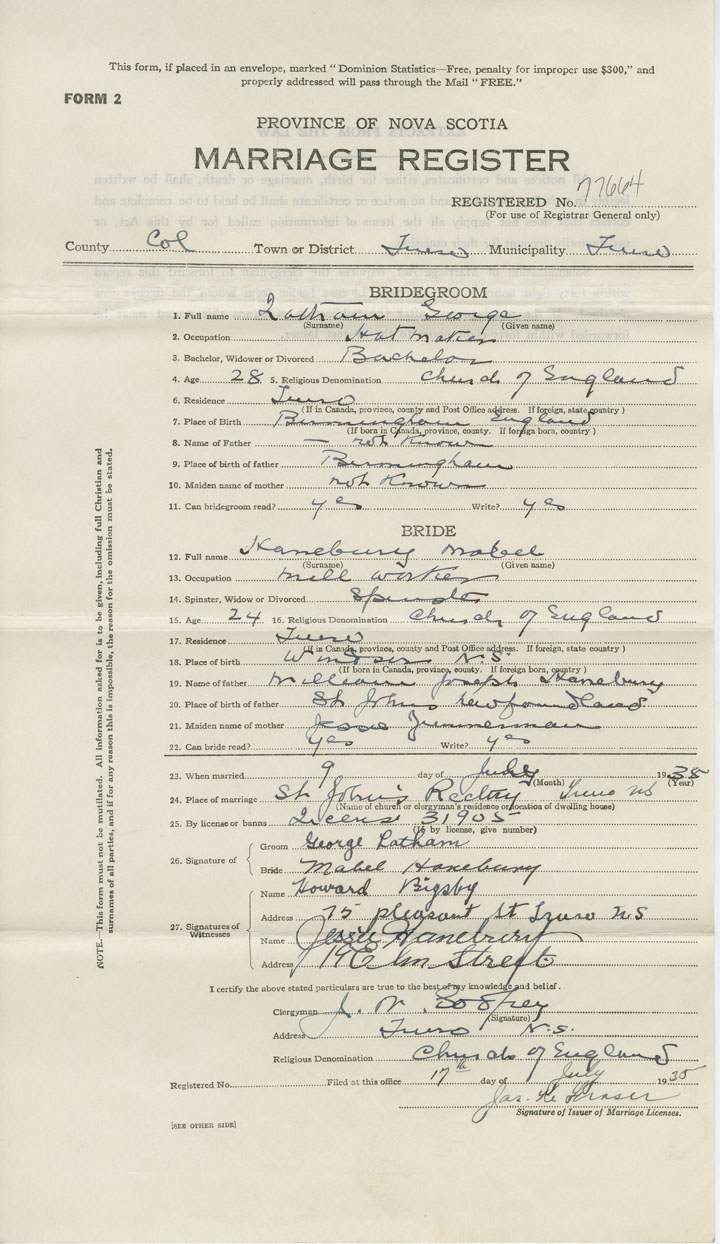 This form, if placed in an envelope, marked "Dominion Statistics—Free, penalty for improper use $300," and
properly addressed will pass through the Mail "FREE."
FORM 2
PROVINCE OF NOVA SCOTIA
MARRIAGE REGISTER
REGISTERED No. 77664
(For use of Registrar General only)
County Col Town or District Truro Municipality Truro
BRIDEGROOM
1. Full name Latham George
(Surname) (Given name)
2. Occupation Hat maker
3. Bachelor, Widower or Divorced Bachelor
4. Age 28 5. Religious Denomination Church of England
6. Residence Truro
(If in Canada, province, county and Post Office address. If foreign, state country )
7. Place of Birth Birmingham England
(If born in Canada, province, county. If foreign born, country )
8. Name of Father — not Known
9. Place of birth of father Birmingham
10. Maiden name of mother not Known
11. Can bridegroom read? yes Write? yes
BRIDE
12. Full name Hanebury Mabel
(Surname) (Given name)
13. Occupation mill worker
14. Spinster, Widow or Divorced Spinster
15. Age 24 16. Religious Denomination Church of England
17. Residence Truro
(If in Canada, province, county and Post Office address. If foreign, state country )
18. Place of birth Windsor N.S.
(If born in Canada, province, county. If foreign born, country )
19. Name of father William Joseph Hanebury
20. Place of birth of father St Johns Newfoundland
21. Maiden name of mother Zimmerman
22. Can bride read? yes Write? yes
23. When married 9 day of July 1935
(Month) (Year)
24. Place of marriage St John's Rectory Truro NS
(Name of church or clergyman's residence or location of dwelling house)
25. By license or banns License 31905
(If by license, give number)
26. Signature of
Groom George Latham
Bride Mabel Hanebury
27. Signatures of Witnesses
Name Howard Bigsby
Address 75 pleasant St Truro NS
Name Jessie Hanebury
Address 19 Elm Street
I certify the above stated particulars are true to the best of my knowledge and belief.
Clergyman J. W. Godfrey
(Signature)
Address Truro N.S.
Religious Denomination Church of England
Registered No. Filed at this office 17th day of July 1935
Jas. Fraser
Signature of Issuer of Marriage Licenses.
[SEE OTHER SIDE]
NOTE.—This form must not be mutilated. All information asked for is to be given, including full Christian and
surnames of all parties, and if for any reason this is impossible, the reason for the omission must be stated.